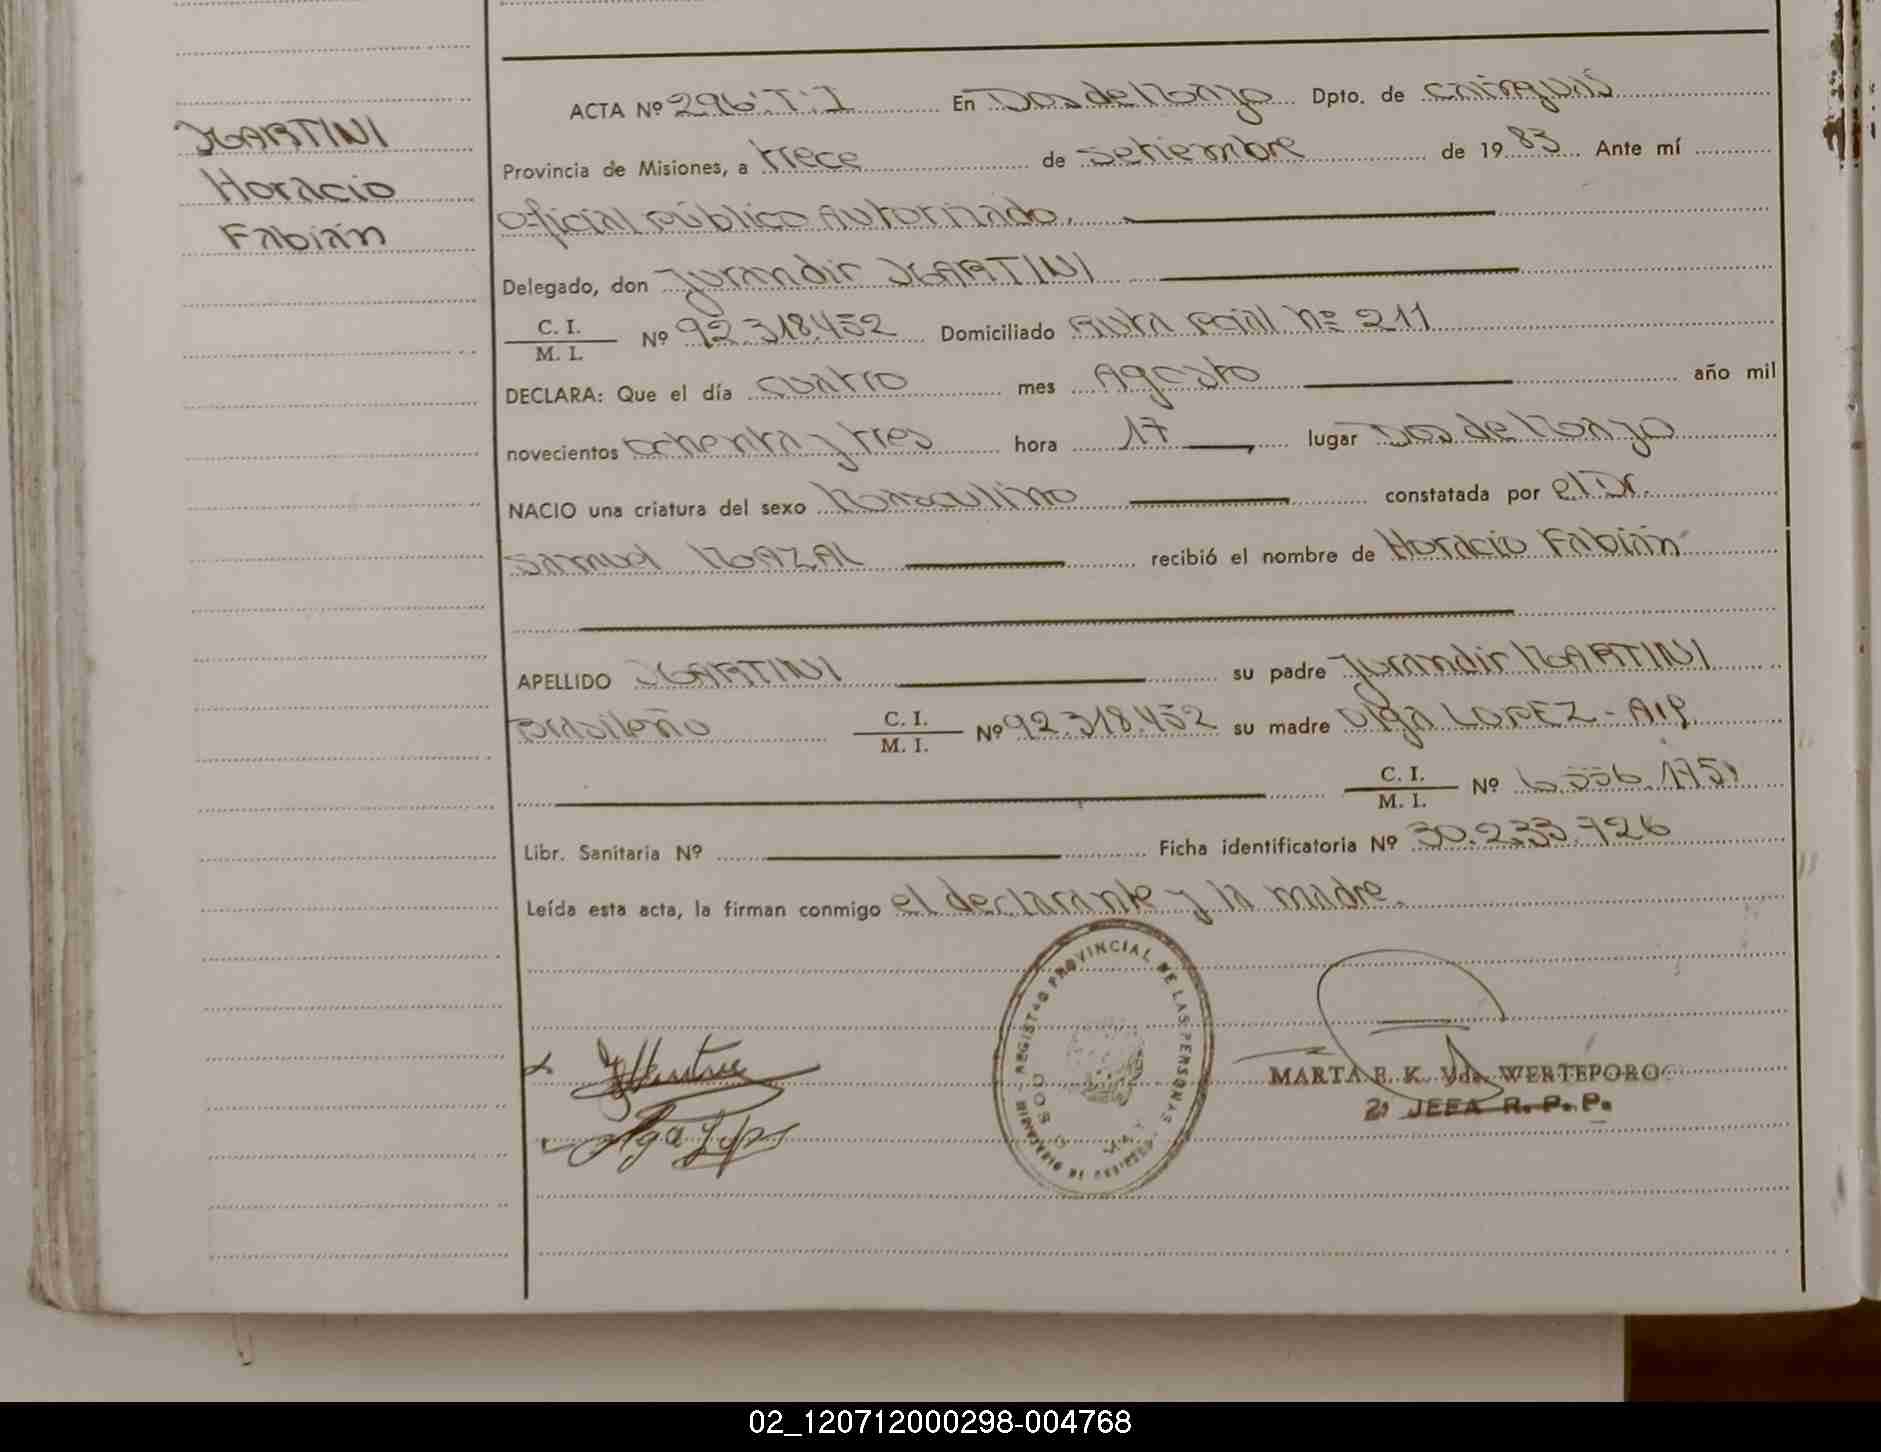 MARTINI
Horacio
Fabián
ACTA Nº 296·T·I En Dos de Mayo Dpto. de Cainguás
Provincia de Misiones, a trece de setiembre de 1983 Ante mí
Oficial Público Autorizado.
Delegado, don Jurandir MARTINI
C. I. / M. I. Nº 92.318.452 Domiciliado Ruta Pcial Nº 211
DECLARA: Que el día cuatro mes Agosto año mil
novecientos ochenta y tres hora 17 lugar Dos de Mayo
NACIO una criatura del sexo Masculino constatada por el Dr.
Samuel MAZAL recibió el nombre de Horacio Fabián
APELLIDO MARTINI su padre Jurandir MARTINI
Brasileño C. I. / M. I. Nº 92.318.452 su madre Olga LOPEZ - Arg.
C. I. / M. I. Nº 6.556.175
Libr. Sanitaria Nº Ficha identificatoria Nº 30.233.726
Leída esta acta, la firman conmigo el declarante y la madre.
REGISTRO PROVINCIAL DE LAS PERSONAS
Olga Lopez
MARTA E. K. Vda. WERTEPORO
2ª JEFA R. P. P.
02_120712000298-004768